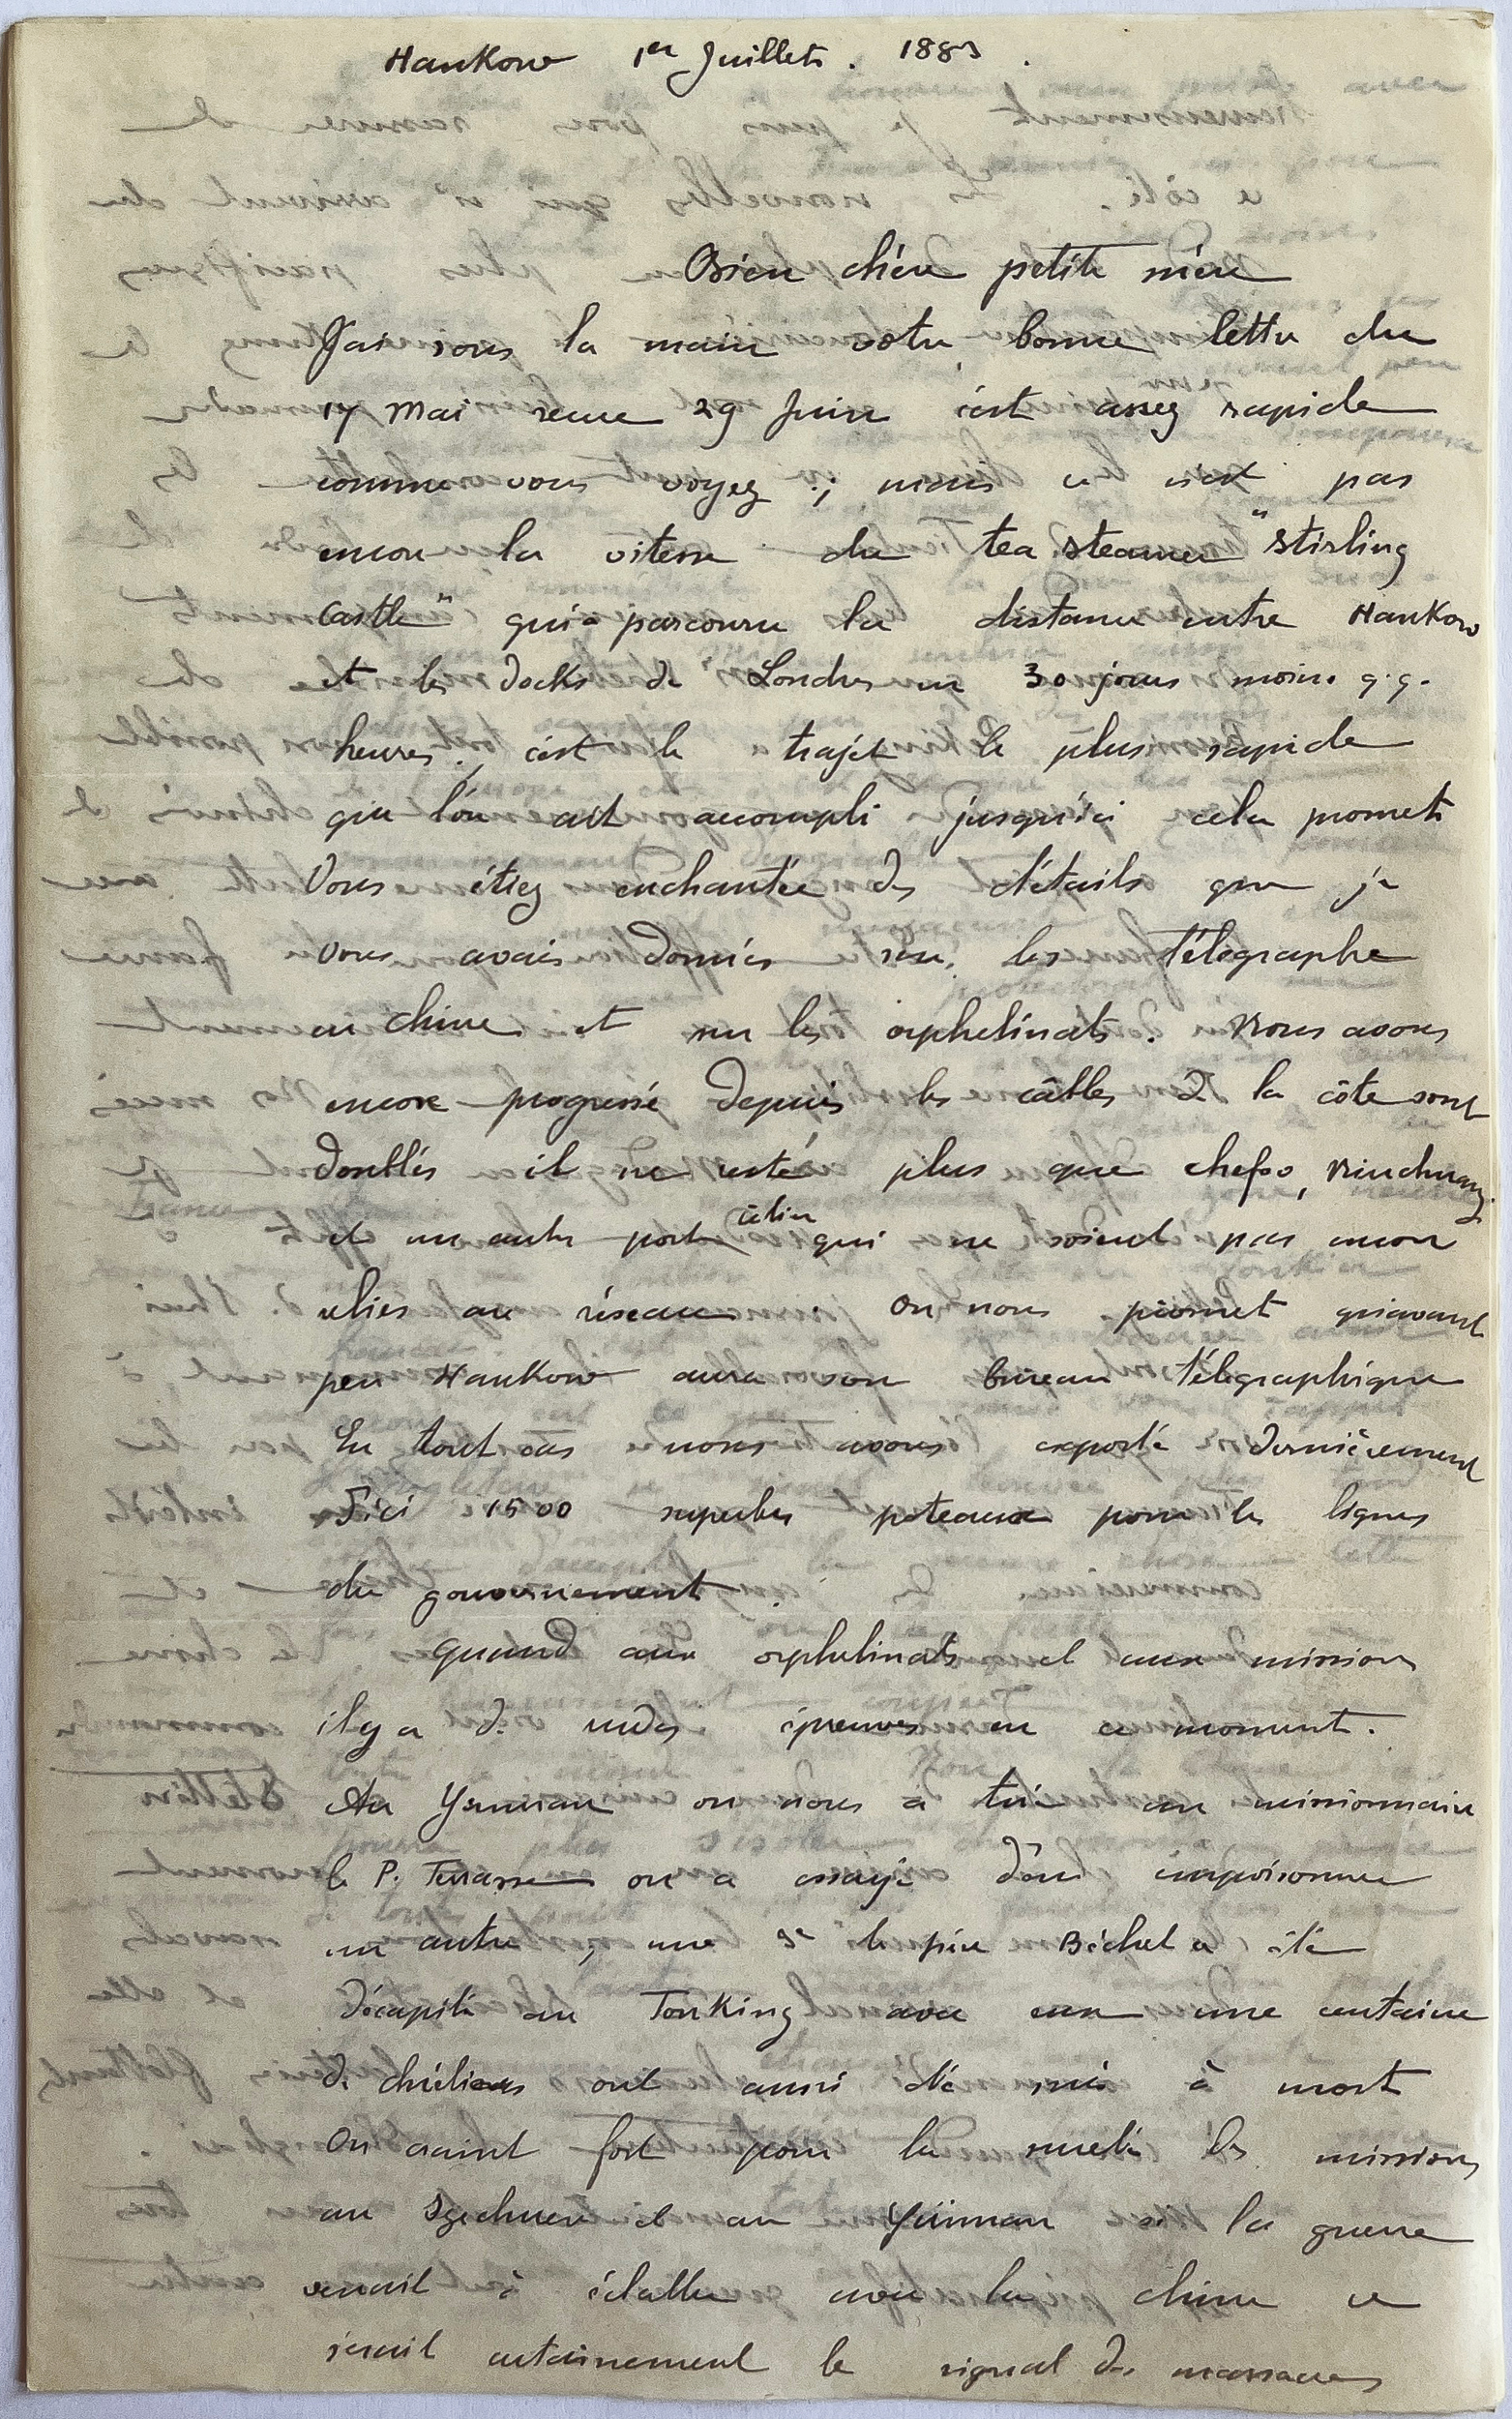 Hankow 1er Juillets. 1883.
Bien chère petite mère
J'ai sous la main votre bonne lettre du
17 Mai recue 29 Juin c'est assez rapide
comme vous voyez ; mais ce n'est pas
encore la vitesse du tea steamer "Stirling
Castle" qui a parcouru la distance entre Hankow
et les docks de Londres en 30 jours moins q.q.
heures. c'est le trajet le plus rapide
que l'on ait accompli jusqu'ici cela promets
Vous étiez enchantée des détails que je
vous avais donnés sur les télégraphe
en chine et sur les orphelinats. Nous avons
encore progressé depuis les câbles à la côte sont
doublés il ne reste plus que chefoo, Niuchwang
et un autre port qui ne soient pas encore
reliés au réseau. On nous promet qu'avant
peu Hankow aura son bureau télégraphique
En tout cas nous avons exporté dernièrement
d'ici 1500 superbes poteaux pour les lignes
du gouvernement.
Quand aux orphelinats et aux missions
il y a de rudes épreuves en ce moment.
Au Yunnan on nous a tué un missionnaire
le P. Terrasse on a essayé d'en empoisonner
un autre, un 3e le père Béchet a été
décapité au Tonking avec eux une centaine
de chrétiens ont aussi été mis à mort
On craint fort pour la sureté des missions
au Szechuen et au Yünnan si la guerre
venait à éclatter avec la chine ce
serait certainement le signal des massacres